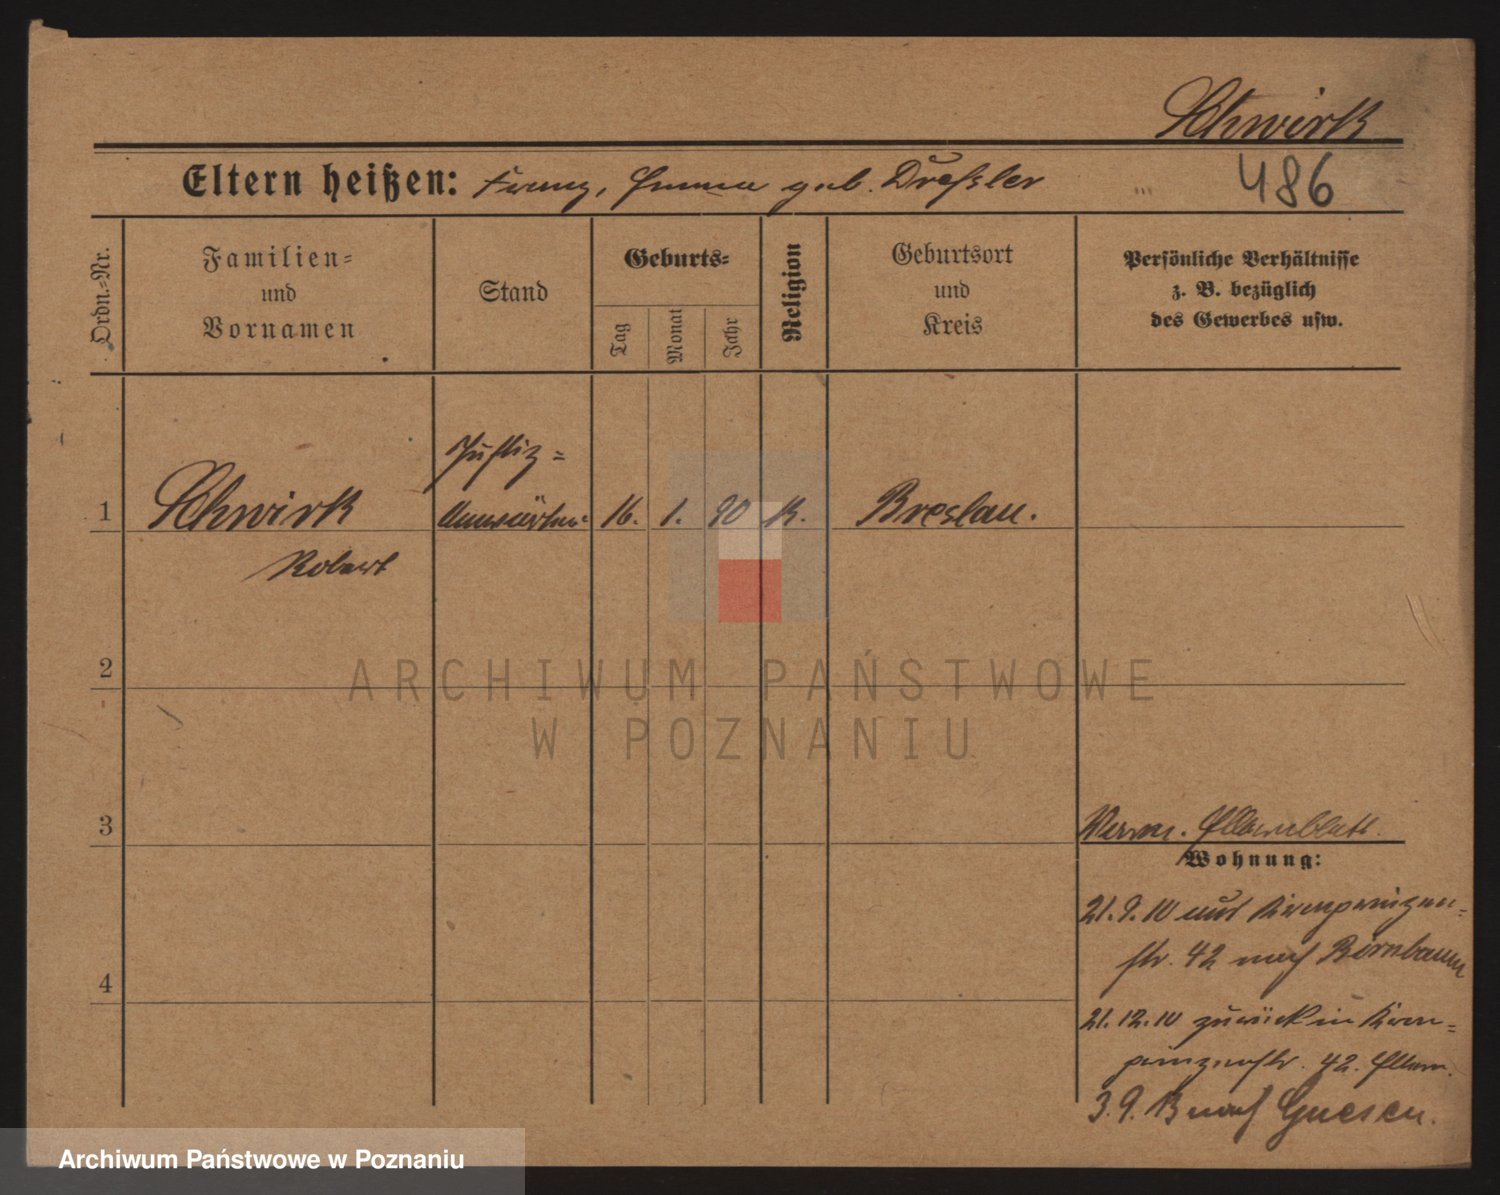 Schwirk
Eltern heißen: Franz, Emma geb. Dreßler
486
Ordn.-Nr.
Familien-
und
Vornamen
Stand
Geburts-
Tag
Monat
Jahr
Religion
Geburtsort
und
Kreis
Persönliche Verhältnisse
z. B. bezüglich
des Gewerbes usw.
Justiz=
1 Schwirk Anwärter 16. 1. 90 K. Breslau.
Robert
2
3
Verm. Elternblatt.
Wohnung:
21.9.10 aus Kronprinzen=
str. 42 nach Birnbaum
4
21.12.10 zurück in Kron=
prinzenstr. 42. Eltern.
3.9.13 nach Gnesen.
ARCHIWUM PAŃSTWOWE
W POZNANIU
Archiwum Państwowe w Poznaniu